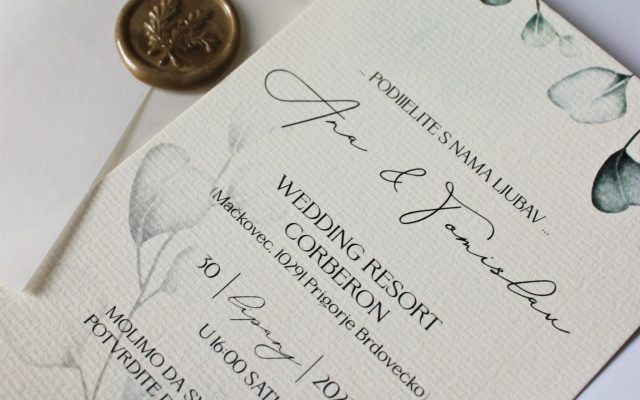 ... PODIJELITE S NAMA LJUBAV ...
Ana & Tomislav
WEDDING RESORT
CORBERON
(Mačkovec, 10291 Prigorje Brdovečko)
30 | lipanj |
U 16:00 SATI
MOLIMO DA
POTVRDITE